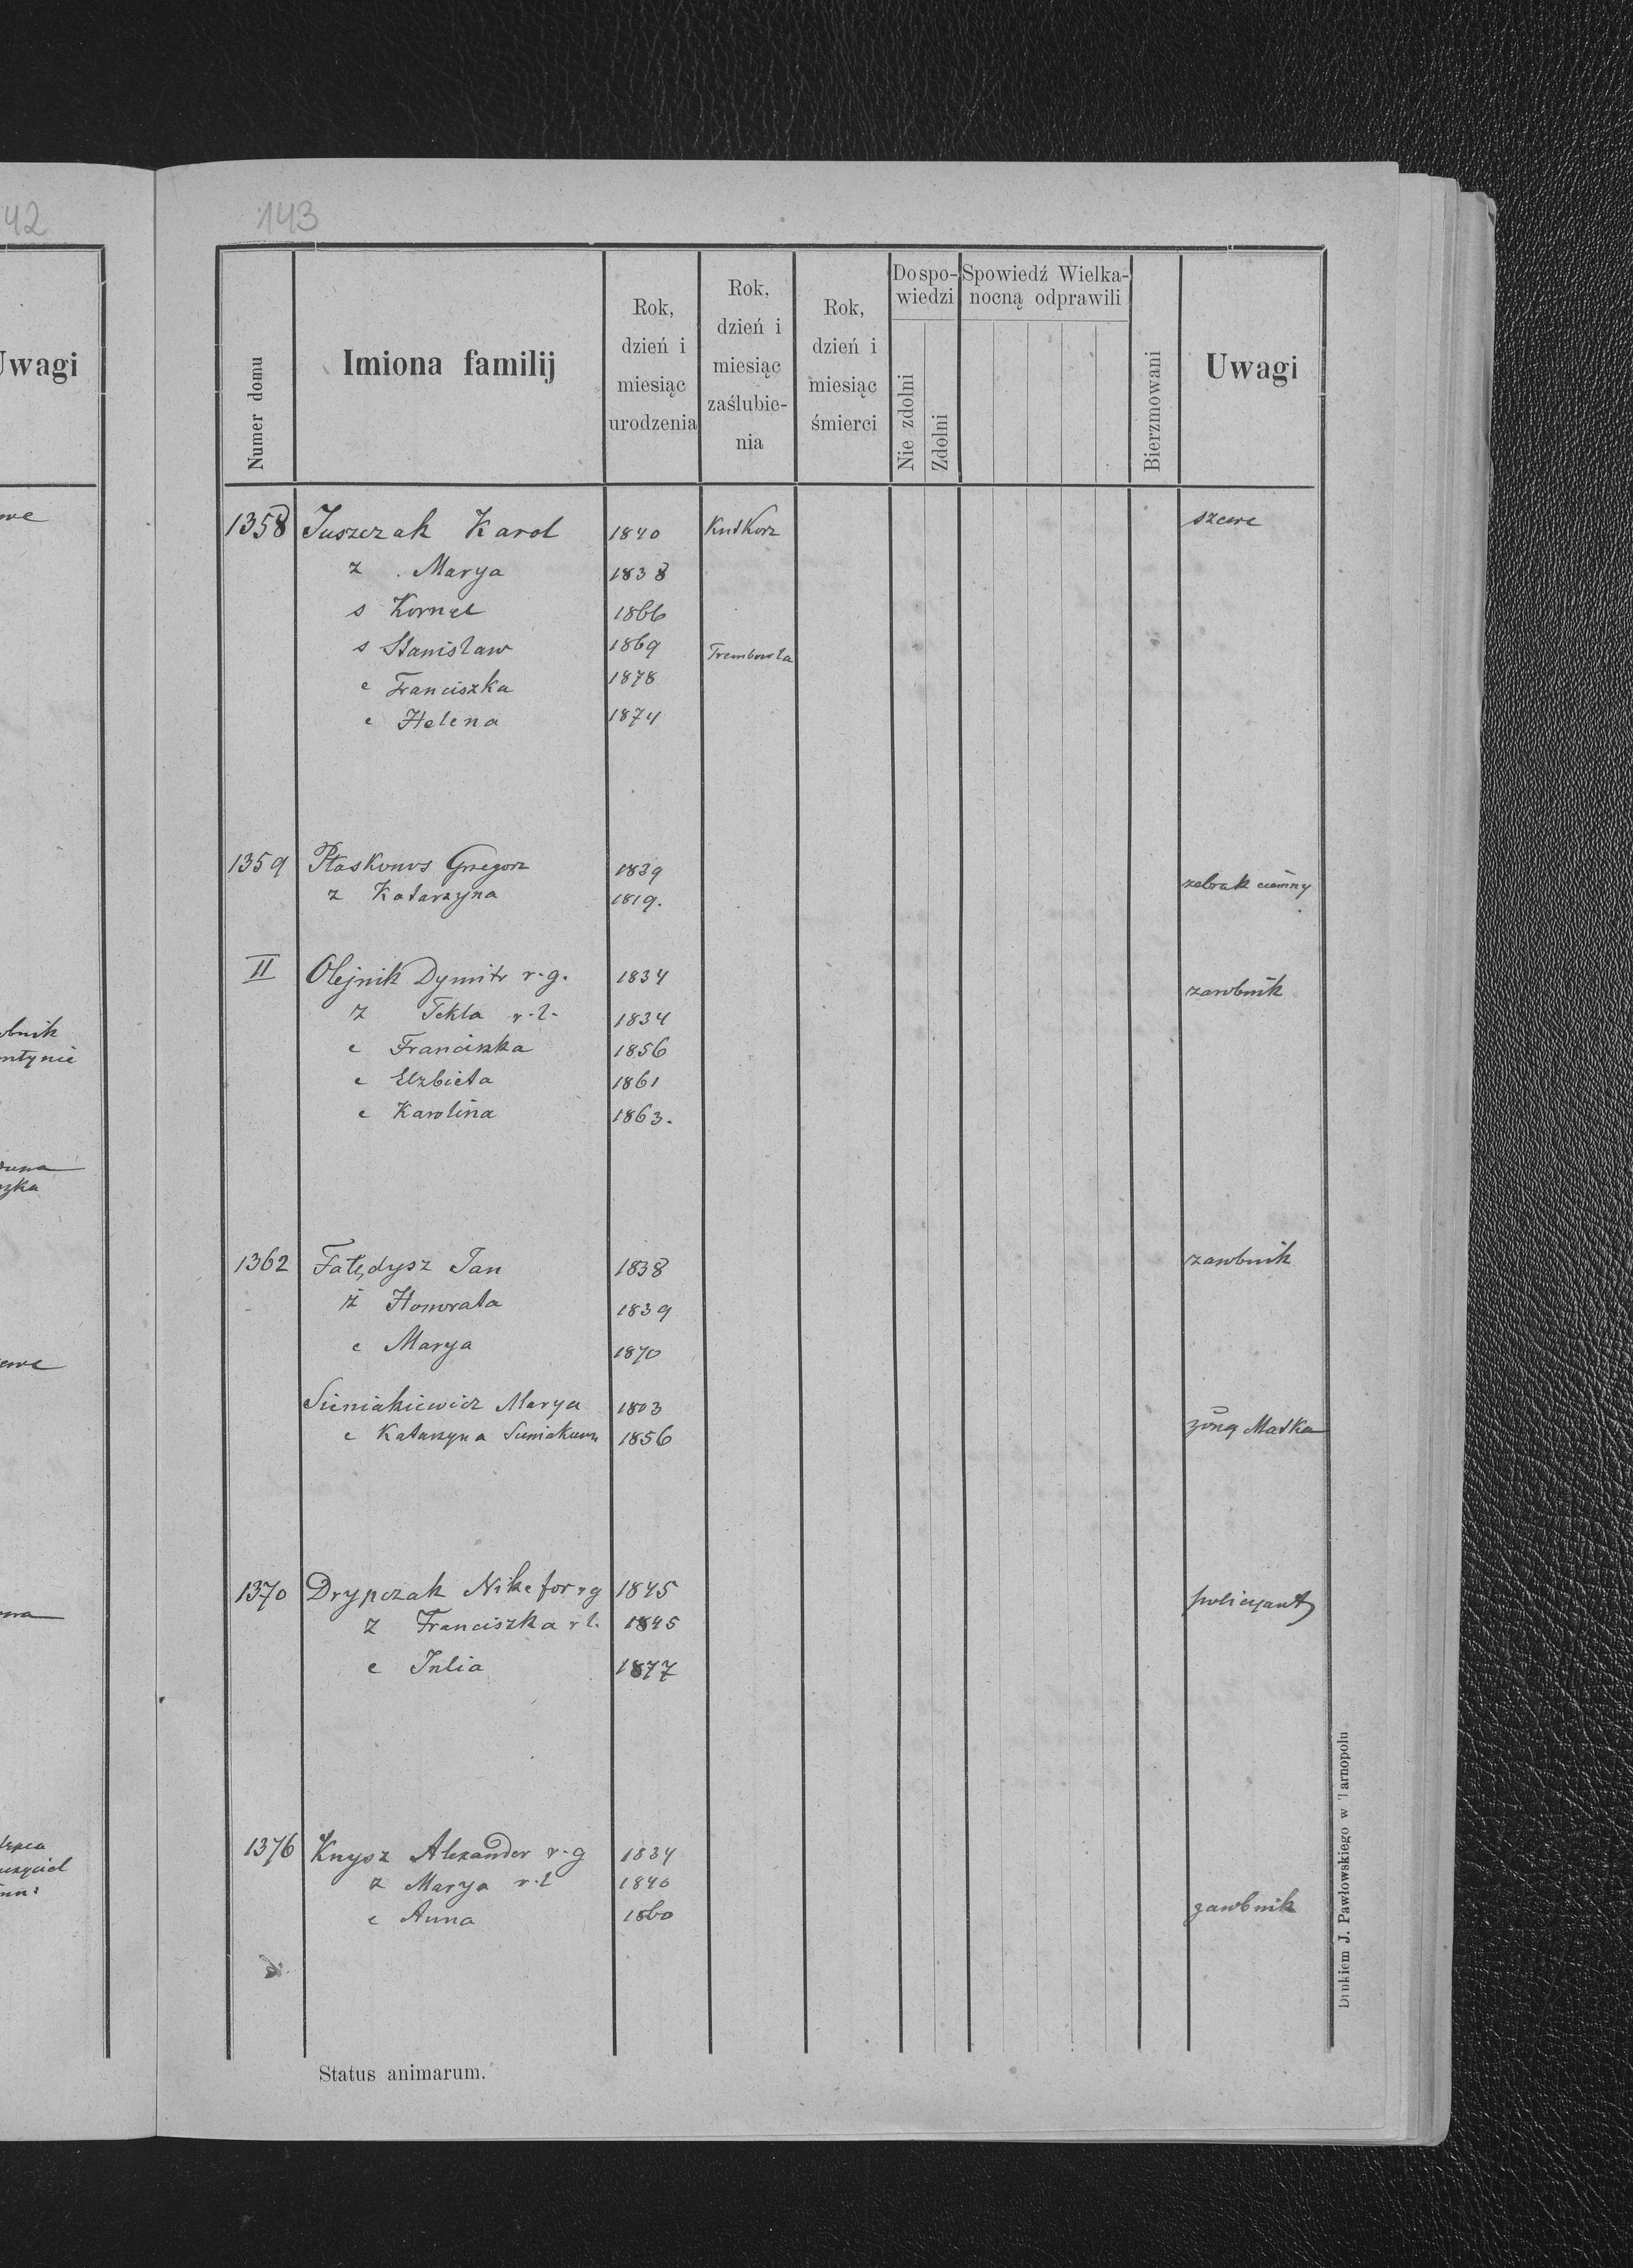 42
143
Uwagi
Numer domu
Imiona familij
Rok, dzień i miesiąc urodzenia
Rok, dzień i miesiąc zaślubienia
Rok, dzień i miesiąc śmierci
Do spowiedzi
Nie zdolni
Zdolni
Spowiedź Wielkanocną odprawili
Bierzmowani
Uwagi
1358 Juszczak Karol 1840 szewc
z Marya 1838
s Kornel 1866
s Stanisław 1869 Trembowla
c Franciszka 1878
c Helena 1874
1359 Grzegorz 1839
z Katarzyna 1819. zebrak ciemny
II Olejnik Dymitr r.g. 1834 zarobnik
z Tekla r.l. 1834
c Franciszka 1856
c Elzbieta 1861
c Karolina 1863.
1362 Jan 1838 zarobnik
ż Honorata 1839
c Marya 1870
Sieniakiewicz Marya 1803
c Katarzyna 1856 Matka
1370 Drypczak Nikefor rg 1845 policyant
z Franciszka r l. 1845
c Julia 1877
1376 Knysz Alexander r-g 1834
z Marya r-l 1840
c Anna 1860 zarobnik
Status animarum.
Drukiem J. Pawłowskiego w Tarnopolu